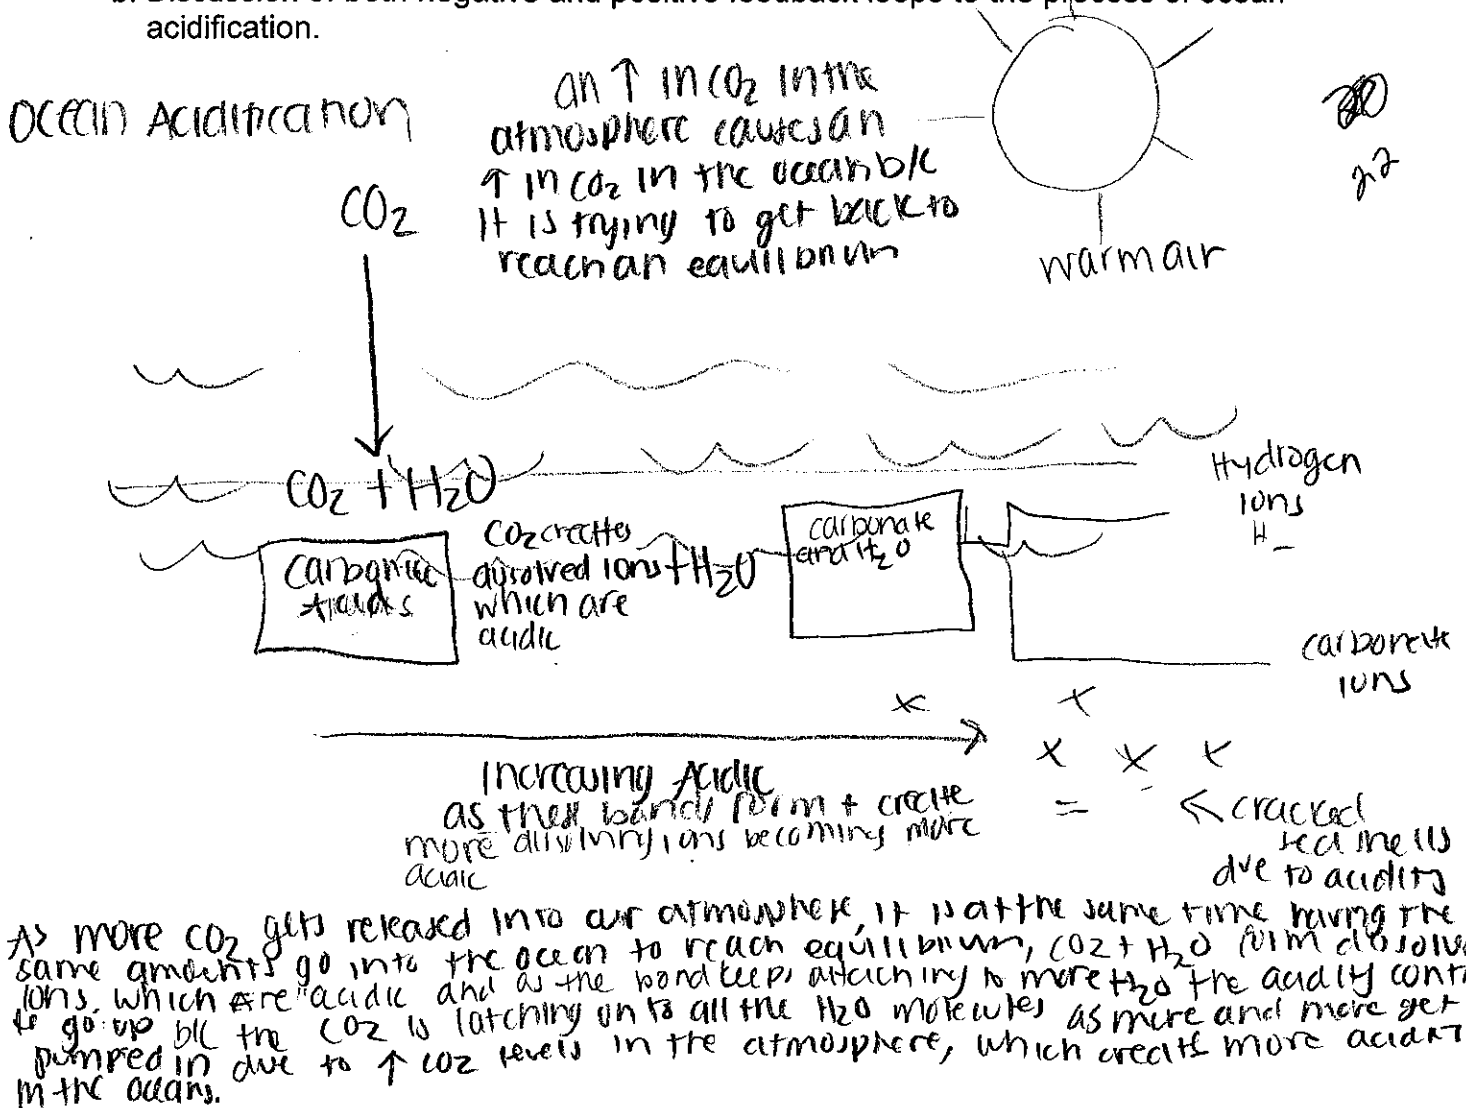 b. Discussion of both negative and positive feedback loops to the process of ocean
acidification.
Ocean Acidification
an ↑ in CO2 in the
atmosphere causes an
↑ in CO2 in the ocean b/c
it is trying to get back to
reach an equilibrium
22
CO2
warm air
CO2 + H2O
Hydrogen
Ions
H
Carbonic
Acids
CO2 creates
dissolved ions
which are
acidic
+ H2O
carbonate
and H2O
carbonate
ions
Increasing Acidic
as these bonds form + create
more dissolving ions becoming more
acidic
← cracked
sea shells
due to acidity
As more CO2 gets released into our atmosphere, it is at the same time having the
same amounts go into the ocean to reach equilibrium, CO2 + H2O form dissolv
ions. which are acidic and as the bond keeps attaching to more H2O the acidity conti
to go up b/c the CO2 is latching on to all the H2O molecules as more and more get
pumped in due to ↑ CO2 levels in the atmosphere, which creates more acidity
in the oceans.